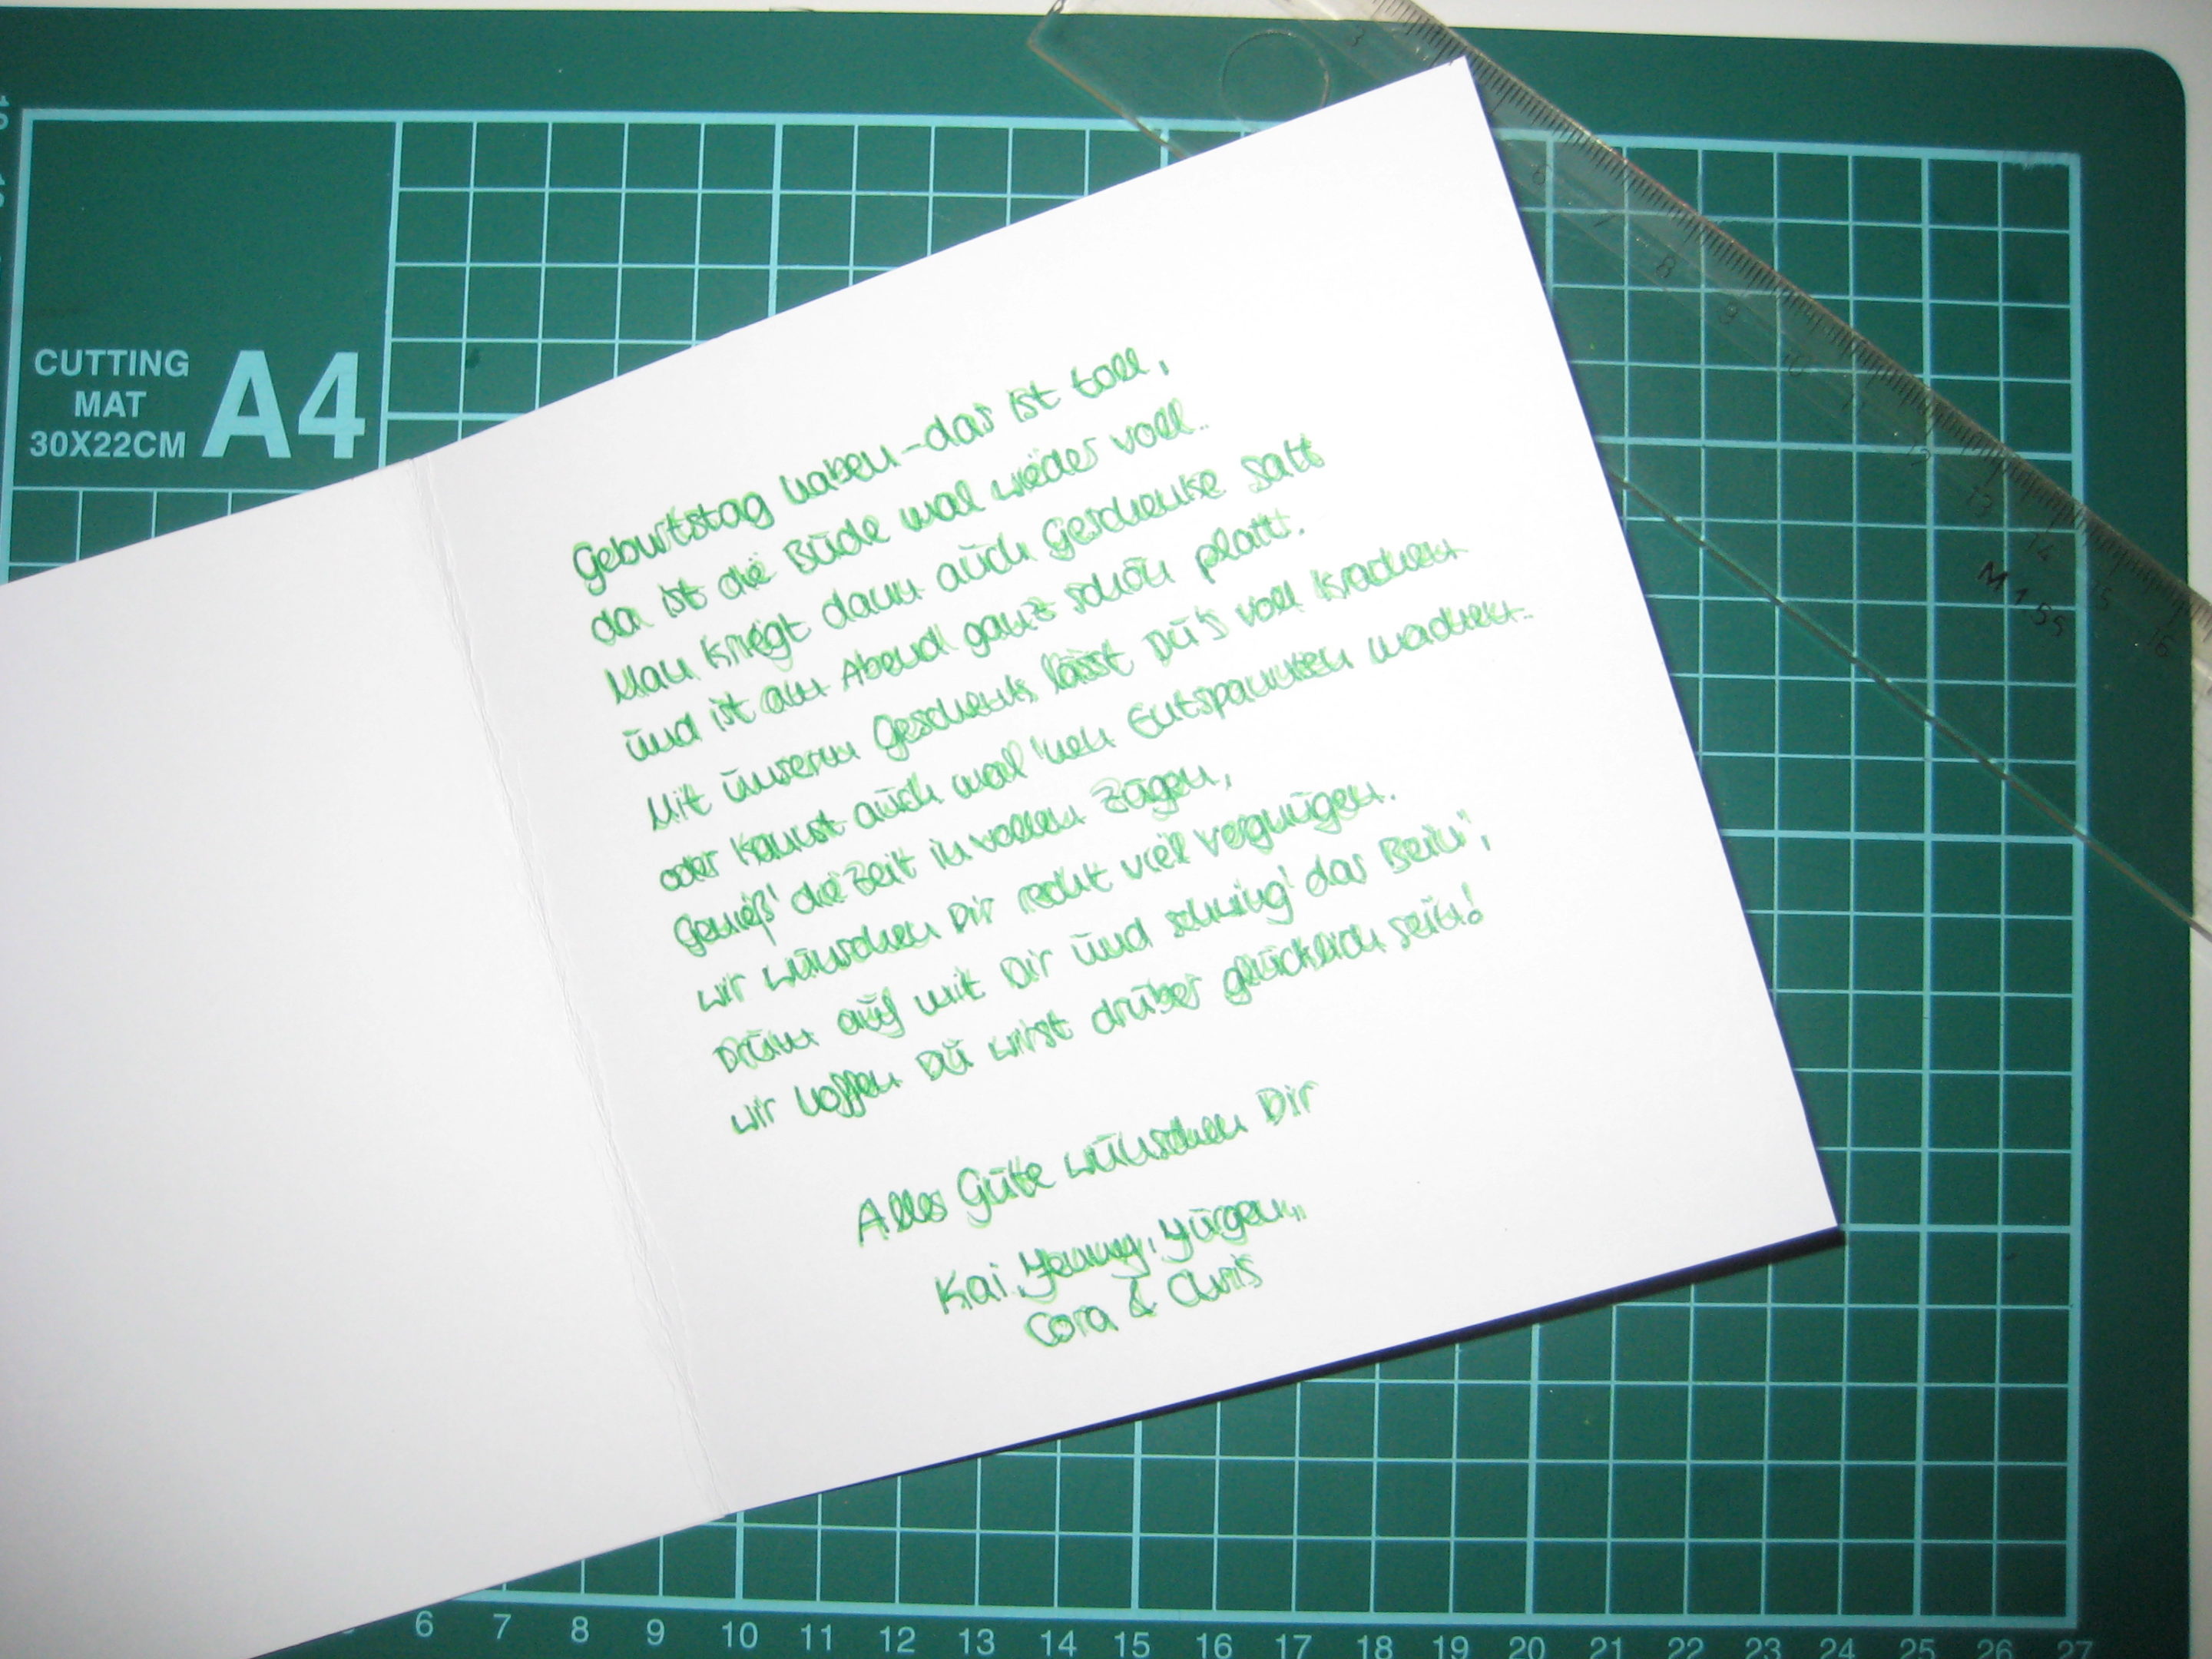 CUTTING
MAT
30X22CM
A4
Geburtstag haben – das ist toll,
da ist die Bude mal wieder voll.
Man kriegt dann auch Geschenke satt
und ist am Abend ganz schön platt.
Mit unserm Geschenk lässt Du's voll krachen
oder kannst auch mal 'nen Entspannten machen.
Genieß' die Zeit in vollen Zügen,
wir wünschen Dir recht viel Vergnügen.
Drum auf mit Dir und schwing' das Bein',
wir hoffen Du wirst drüber glücklich sein!
Alles Gute wünschen Dir
Kai, Yenny, Yürgen,
Cora & Chris
3
6
7
8
9
10
11
12
13
14
15
16
M 1 55
6 7 8 9 10 11 12 13 14 15 16 17 18 19 20 21 22 23 24 25 26 27